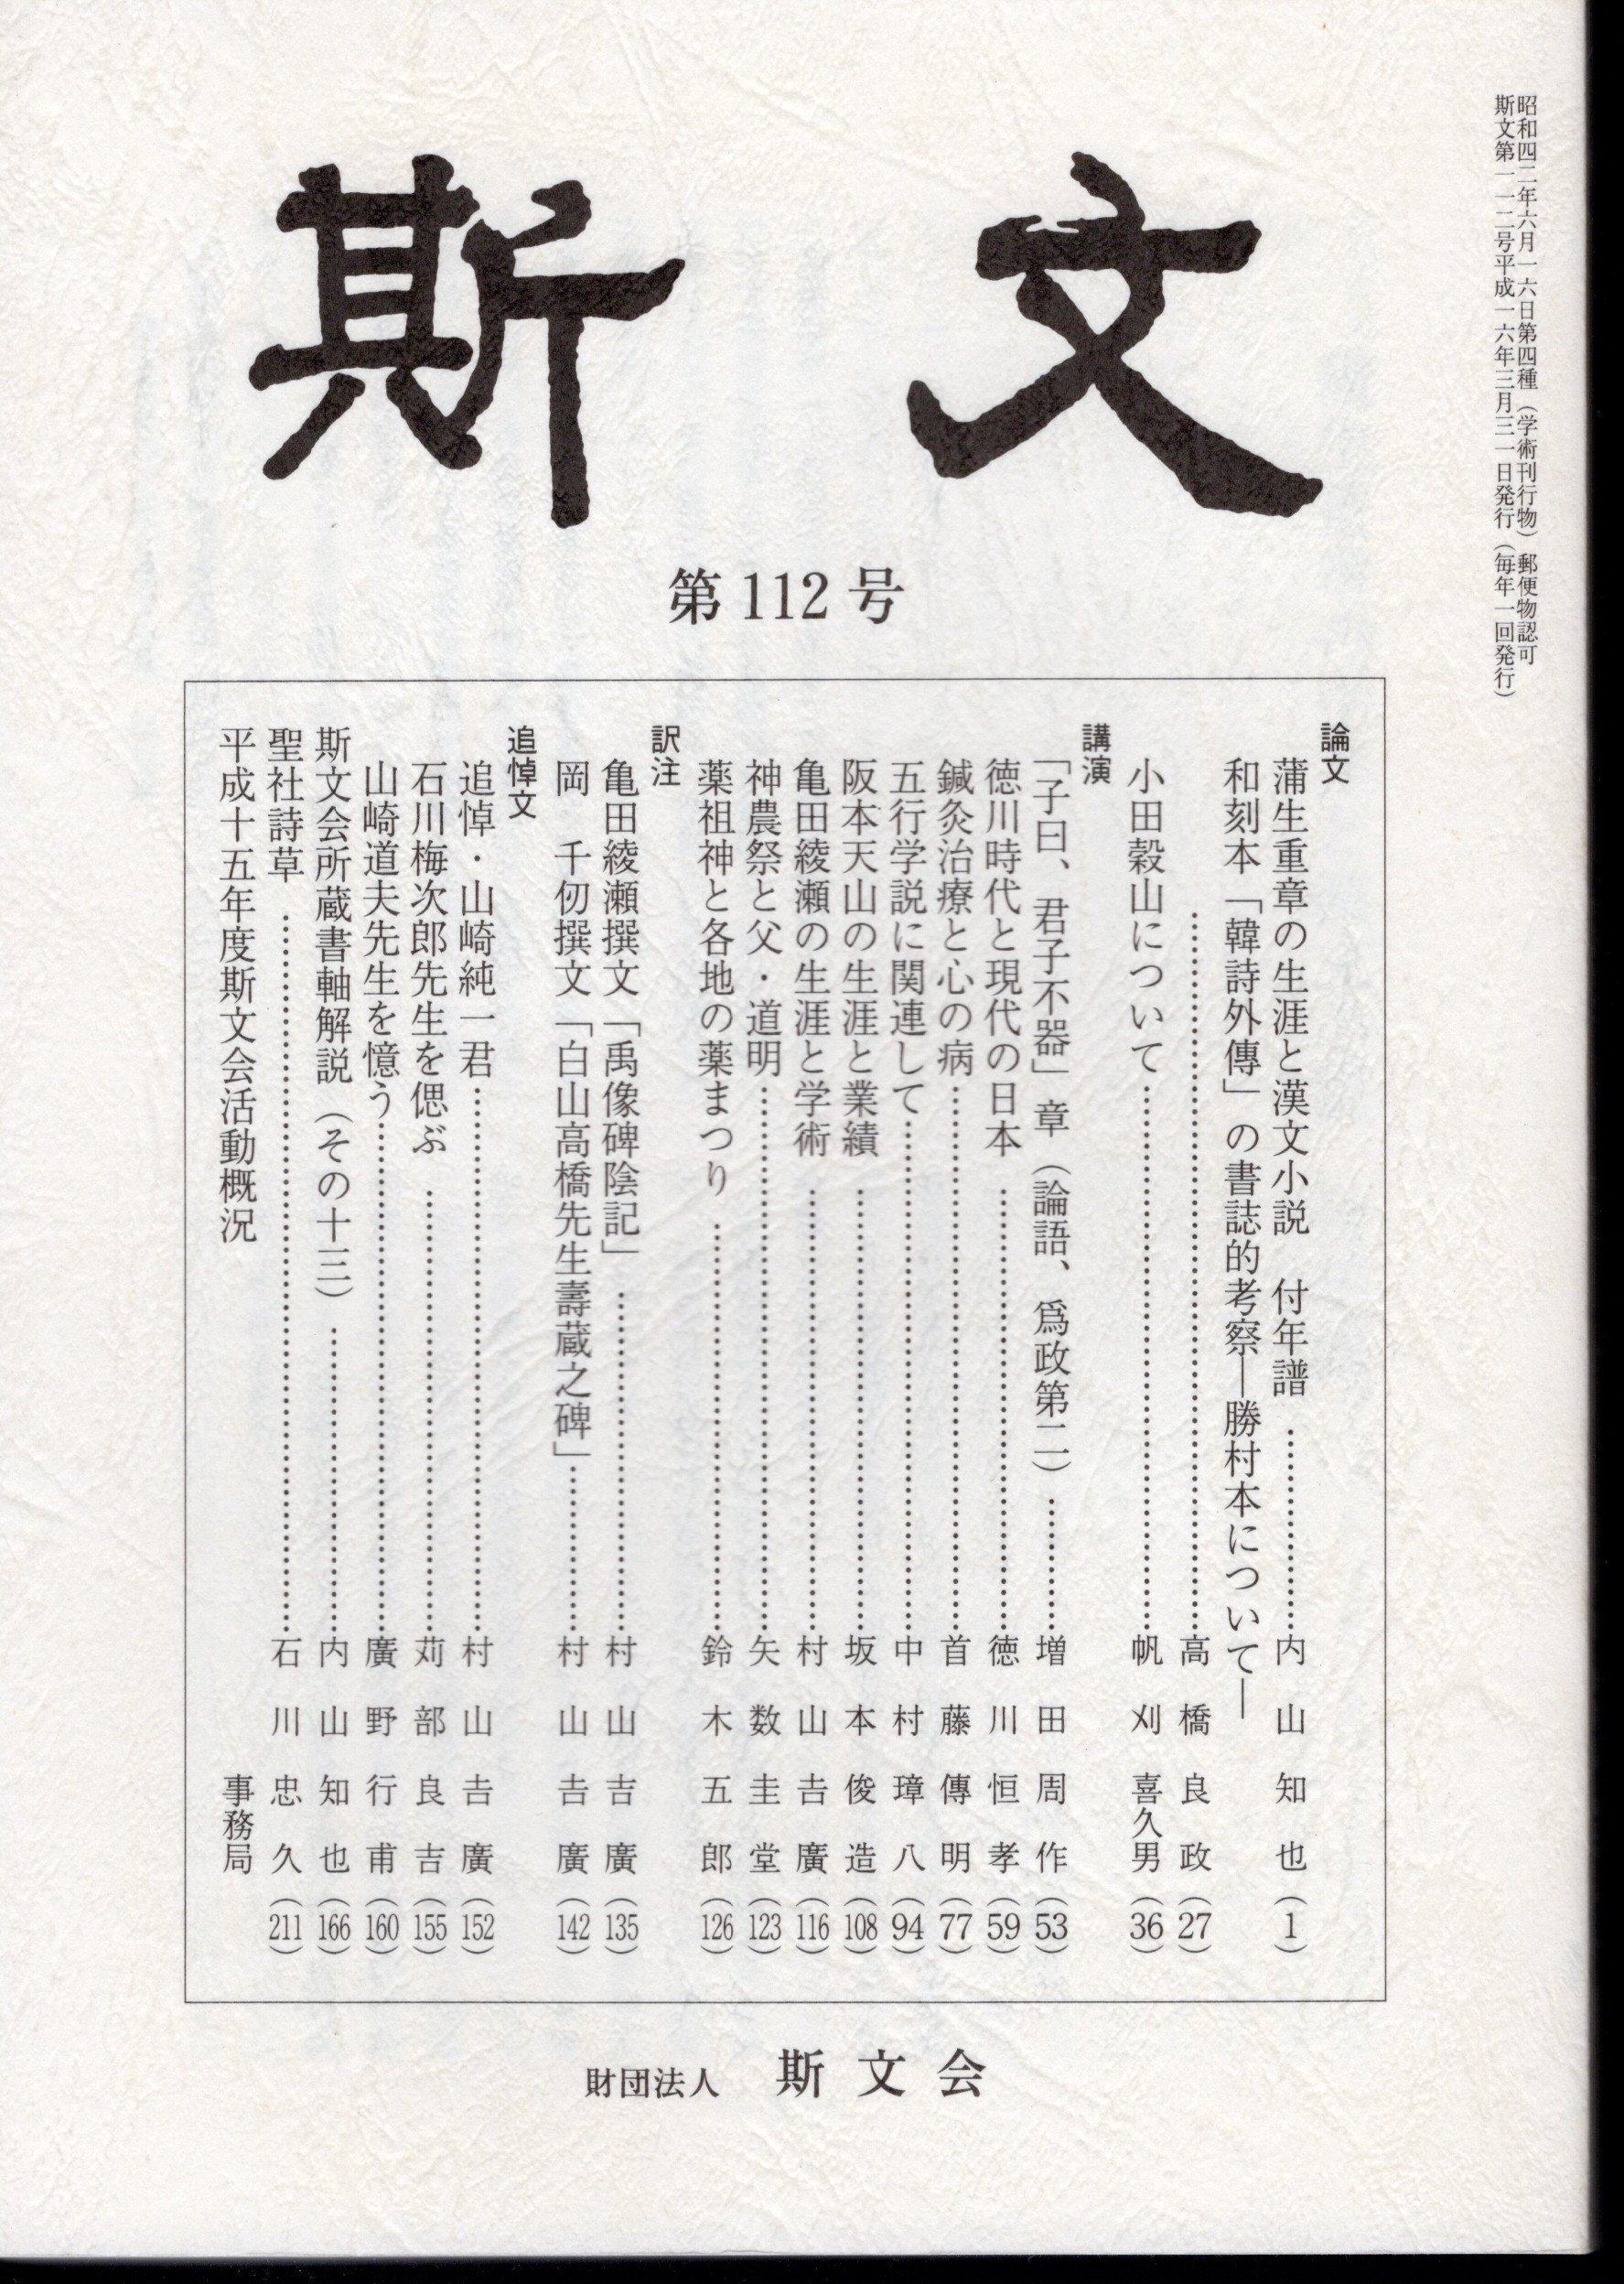 昭和四二年六月一六日第四種（学術刊行物）郵便物認可
斯文第一一二号平成一六年三月三一日発行（毎年一回発行）
斯文
第112号
論文
蒲生重章の生涯と漢文小説　付年譜……………内山知也（1）
和刻本「韓詩外傳」の書誌的考察―勝村本について―
……………高橋良政（27）
小田穀山について……………帆刈喜久男（36）
講演
「子曰、君子不器」章（論語、爲政第二）……………増田周作（53）
徳川時代と現代の日本……………徳川恒孝（59）
鍼灸治療と心の病……………首藤傳明（77）
五行学説に関連して……………中村璋八（94）
阪本天山の生涯と業績……………坂本俊造（108）
亀田綾瀬の生涯と学術……………村山吉廣（116）
神農祭と父・道明……………矢数圭堂（123）
薬祖神と各地の薬まつり……………鈴木五郎（126）
訳注
亀田綾瀬撰文「禹像碑陰記」……………村山吉廣（135）
岡　千仞撰文「白山高橋先生壽蔵之碑」……………村山吉廣（142）
追悼文
追悼・山崎純一君……………村山吉廣（152）
石川梅次郎先生を偲ぶ……………苅部良吉（155）
山崎道夫先生を憶う……………廣野行甫（160）
斯文会所蔵書軸解説（その十三）……………内山知也（166）
聖社詩草……………石川忠久（211）
平成十五年度斯文会活動概況　事務局
財団法人　斯文会